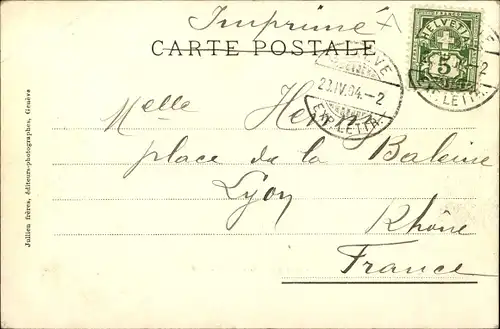 Imprimé
CARTE POSTALE
HELVETIA
FRANCO
5
GENÈVE
20.IV.04.-2
EXP. LETTR.
Melle He
place de la Baleine
Lyon
Rhône
France
Jullien frères, éditeurs-photographes, Genève